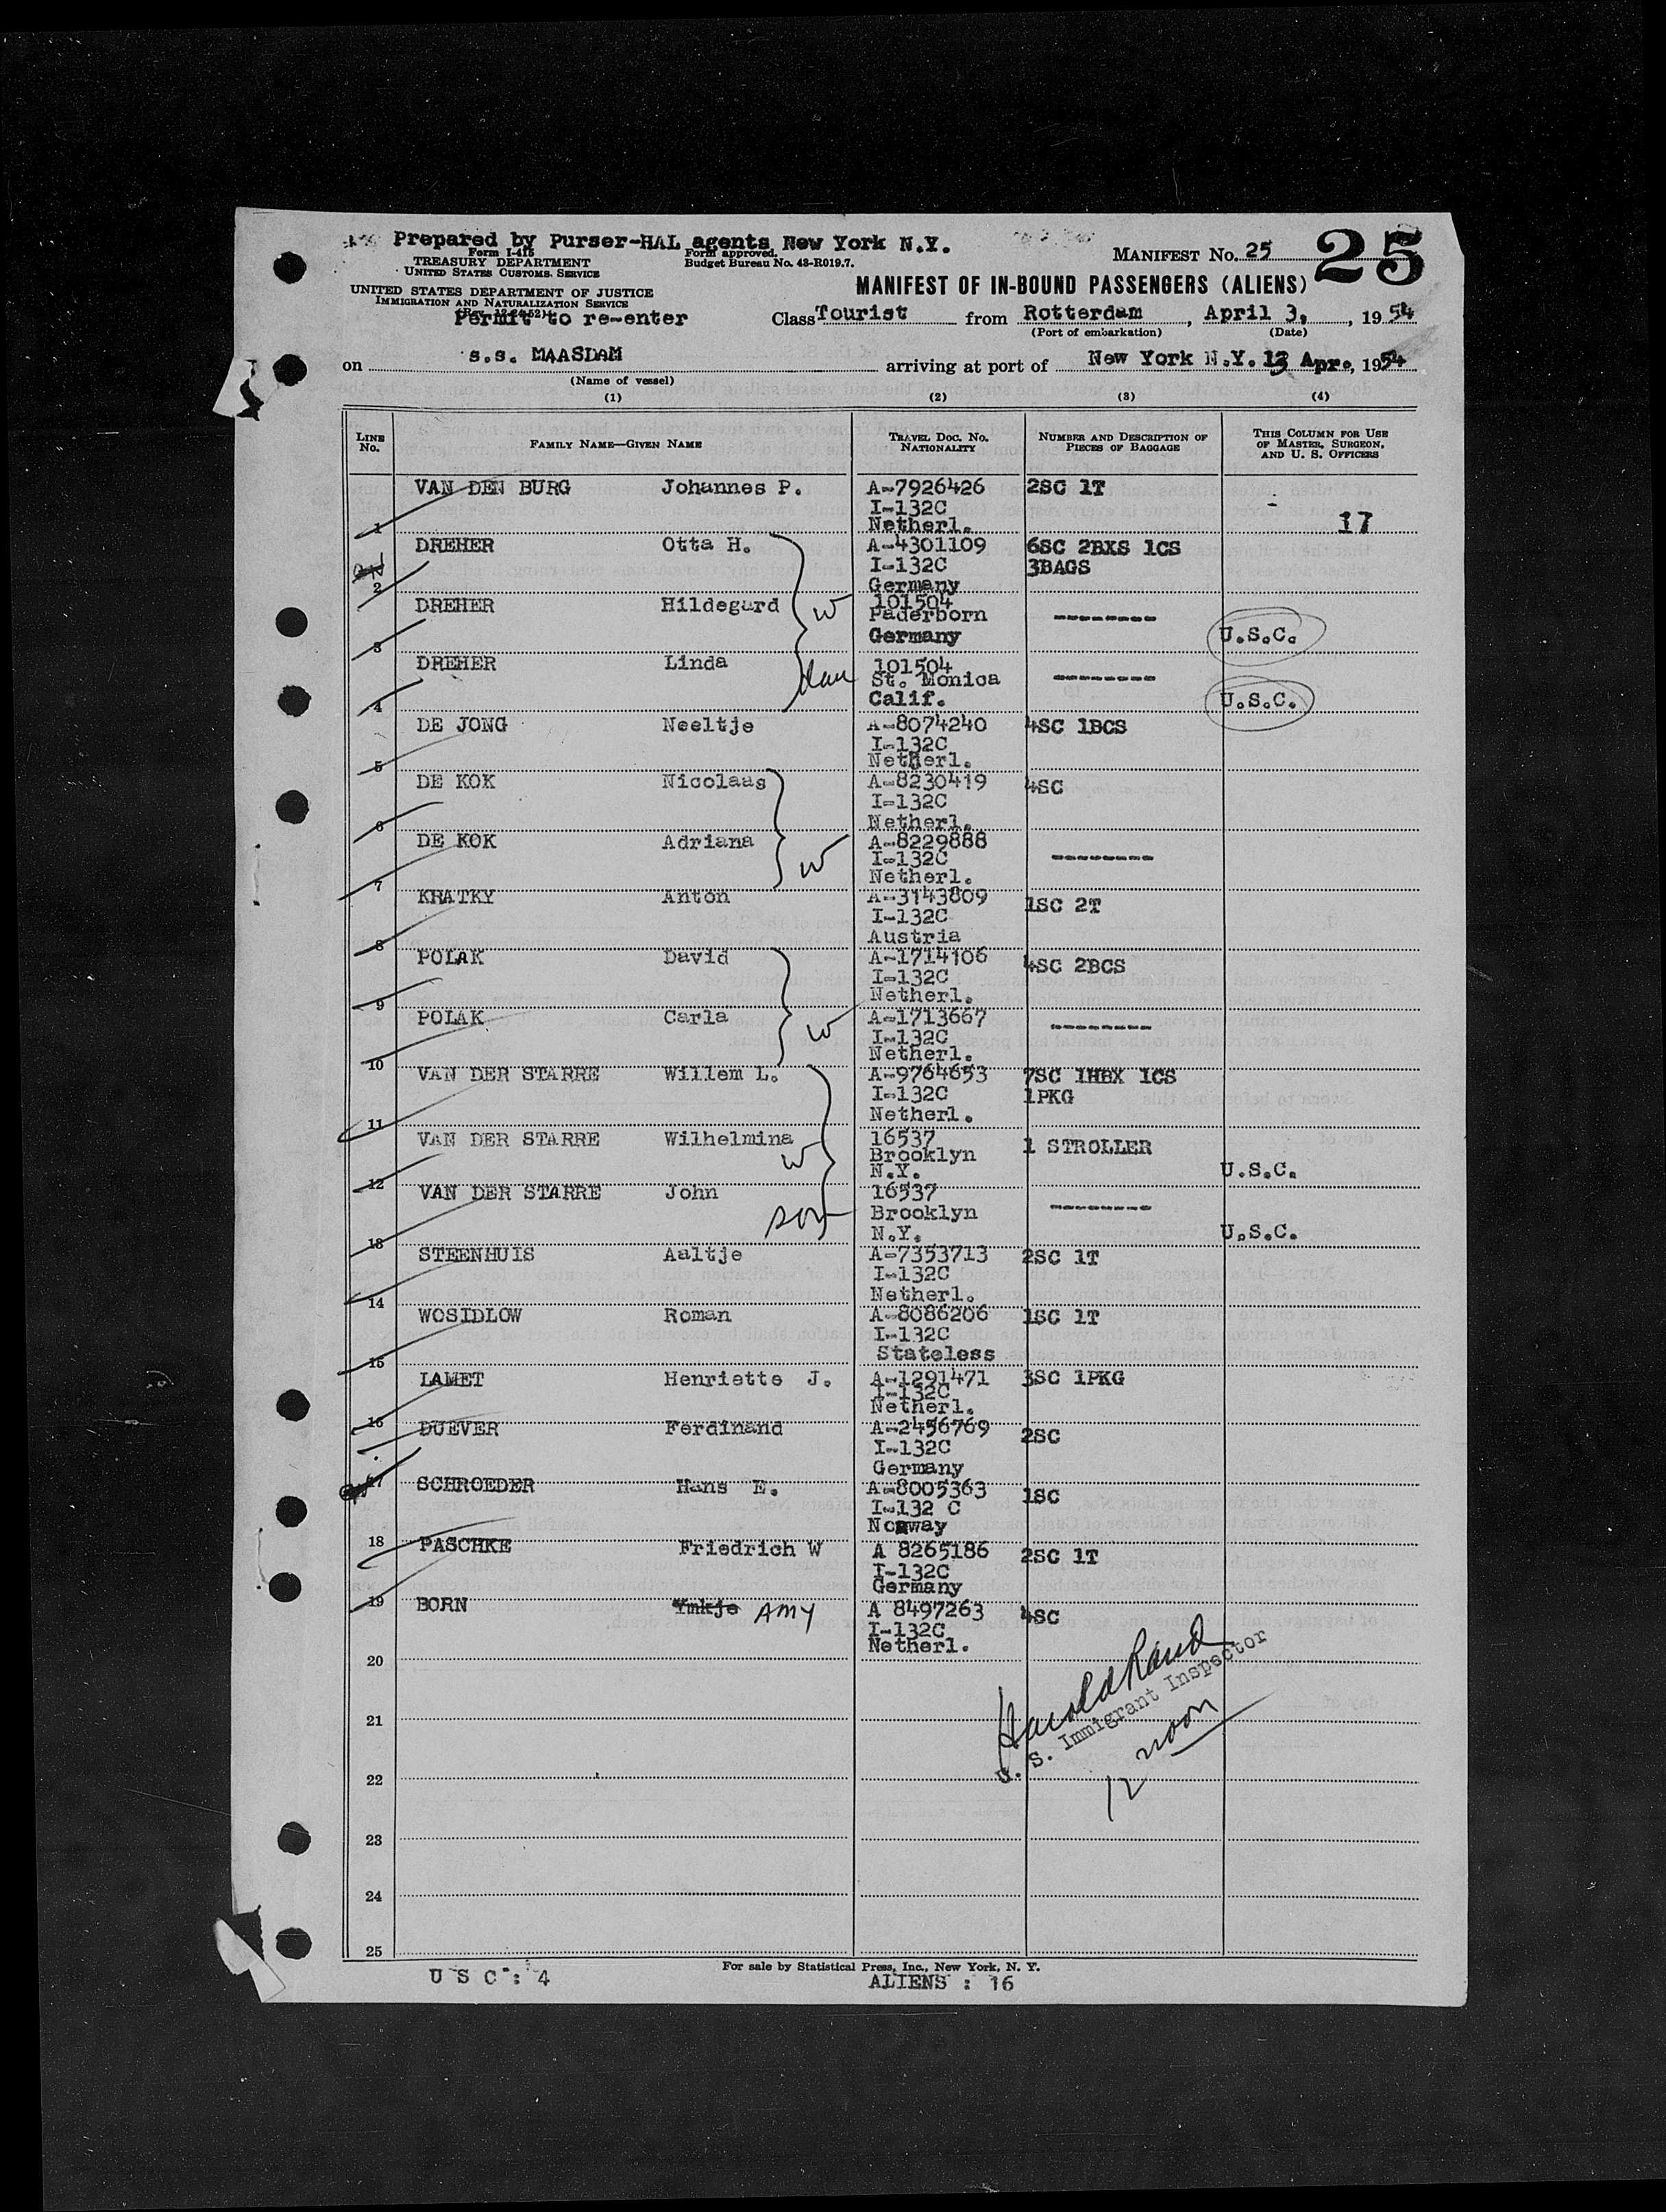 Prepared by Purser-HAL agents New York N.Y.
Form I-415
TREASURY DEPARTMENT
UNITED STATES CUSTOMS SERVICE
Form approved.
Budget Bureau No. 43-R019.7.
MANIFEST No. 25
25
UNITED STATES DEPARTMENT OF JUSTICE
IMMIGRATION AND NATURALIZATION SERVICE
(Rev. 12-24-52)
Permit to re-enter
MANIFEST OF IN-BOUND PASSENGERS (ALIENS)
Class Tourist from Rotterdam, April 3, , 19 54
(Port of embarkation) (Date)
on s.s. MAASDAM arriving at port of New York N.Y. 13 Apr., 1954
(Name of vessel)
(1) (2) (3) (4)
LINE No. FAMILY NAME—GIVEN NAME TRAVEL DOC. NO. NATIONALITY NUMBER AND DESCRIPTION OF PIECES OF BAGGAGE THIS COLUMN FOR USE OF MASTER, SURGEON, AND U. S. OFFICERS
VAN DEN BURG Johannes P. A-7926426 2SC 1T
I-132C
1 Netherl. 17
DREHER Otta H. A-4301109 6SC 2BXS 1CS
I-132C 3BAGS
2 Germany
DREHER Hildegard W 101504 --------
Paderborn
3 Germany U.S.C.
DREHER Linda dau 101504 --------
St. Monica
4 Calif. U.S.C.
DE JONG Neeltje A-8074240 4SC 1BCS
I-132C
5 Netherl.
DE KOK Nicolaas A-8230419 4SC
I-132C
6 Netherl.
DE KOK Adriana W A-8229888 --------
I-132C
7 Netherl.
KRATKY Anton A-3143809 1SC 2T
I-132C
8 Austria
POLAK David A-1714106 4SC 2BCS
I-132C
9 Netherl.
POLAK Carla W A-1713667 --------
I-132C
10 Netherl.
VAN DER STARRE Willem L. A-9764653 7SC 1HBX 1CS
I-132C 1PKG
11 Netherl.
VAN DER STARRE Wilhelmina W 16537 1 STROLLER
Brooklyn
12 N.Y. U.S.C.
VAN DER STARRE John son 16537 --------
Brooklyn
13 N.Y. U.S.C.
STEENHUIS Aaltje A-7353713 2SC 1T
I-132C
14 Netherl.
WOSIDLOW Roman A-8086206 1SC 1T
I-132C
15 Stateless
LAMET Henriette J. A-1291471 3SC 1PKG
I-132C
16 Netherl.
DUEVER Ferdinand A-2456769 2SC
I-132C
17 Germany
SCHROEDER Hans E. A-8005363 1SC
I-132 C
18 Norway
PASCHKE Friedrich W A 8265186 2SC 1T
I-132C
19 Germany
BORN Ymkje AMY A 8497263 4SC
I-132C
20 Netherl.
Harold Rand
U. S. Immigrant Inspector
12 noon
21
22
23
24
25
For sale by Statistical Press, Inc., New York, N. Y.
U S C : 4 ALIENS : 16